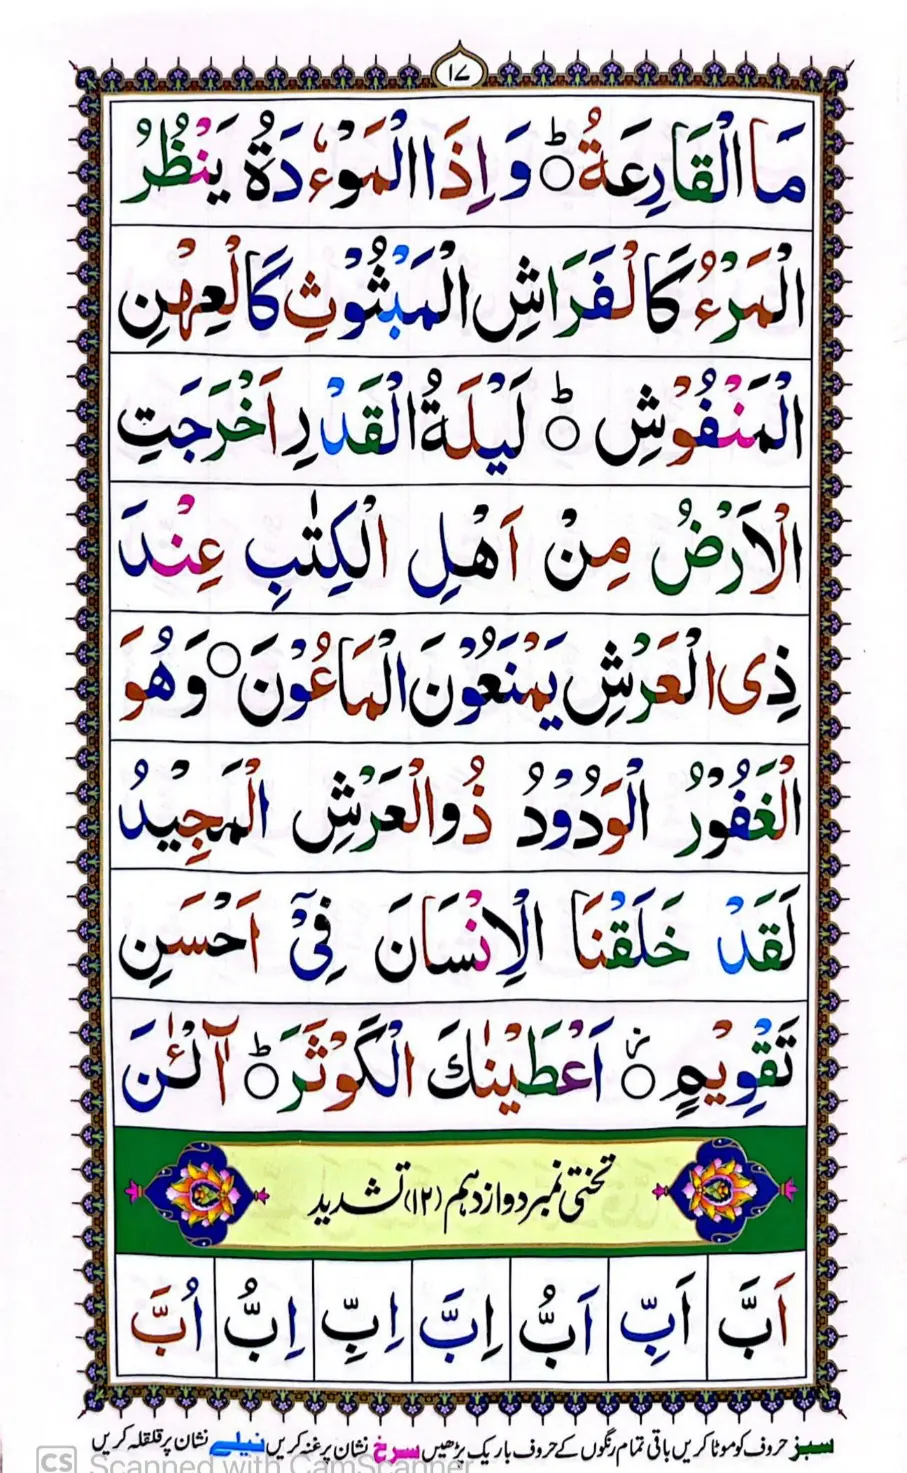 ۱۷
مَا الْقَارِعَةُ ○ؕ وَ اِذَا الْمَوْءٗدَةُ يَنْظُرُ
الْمَرْءُ كَالْفَرَاشِ الْمَبْثُوْثِ كَالْعِهْنِ
الْمَنْفُوْشِ ○ؕ لَيْلَةُ الْقَدْرِ اَخْرَجَتِ
الْاَرْضُ مِنْ اَهْلِ الْكِتٰبِ عِنْدَ
ذِى الْعَرْشِ يَمْنَعُوْنَ الْمَاعُوْنَ ○ وَهُوَ
الْغَفُوْرُ الْوَدُوْدُ ذُو الْعَرْشِ الْمَجِيْدُ
لَقَدْ خَلَقْنَا الْاِنْسَانَ فِىْٓ اَحْسَنِ
تَقْوِيْمٍ ○ز اَعْطَيْنٰكَ الْكَوْثَرَ ○ؕ آلْـٰٔنَ
تختی نمبر دوازدہم (۱۲) تشدید
اَبَّ اَبِّ اَبُّ اِبَّ اِبِّ اِبُّ اُبَّ
سبز حروف کو موٹا کریں باقی تمام رنگوں کے حروف باریک پڑھیں سرخ نشان پر غنہ کریں نیلے نشان پر قلقلہ کریں
CS Scanned with CamScanner